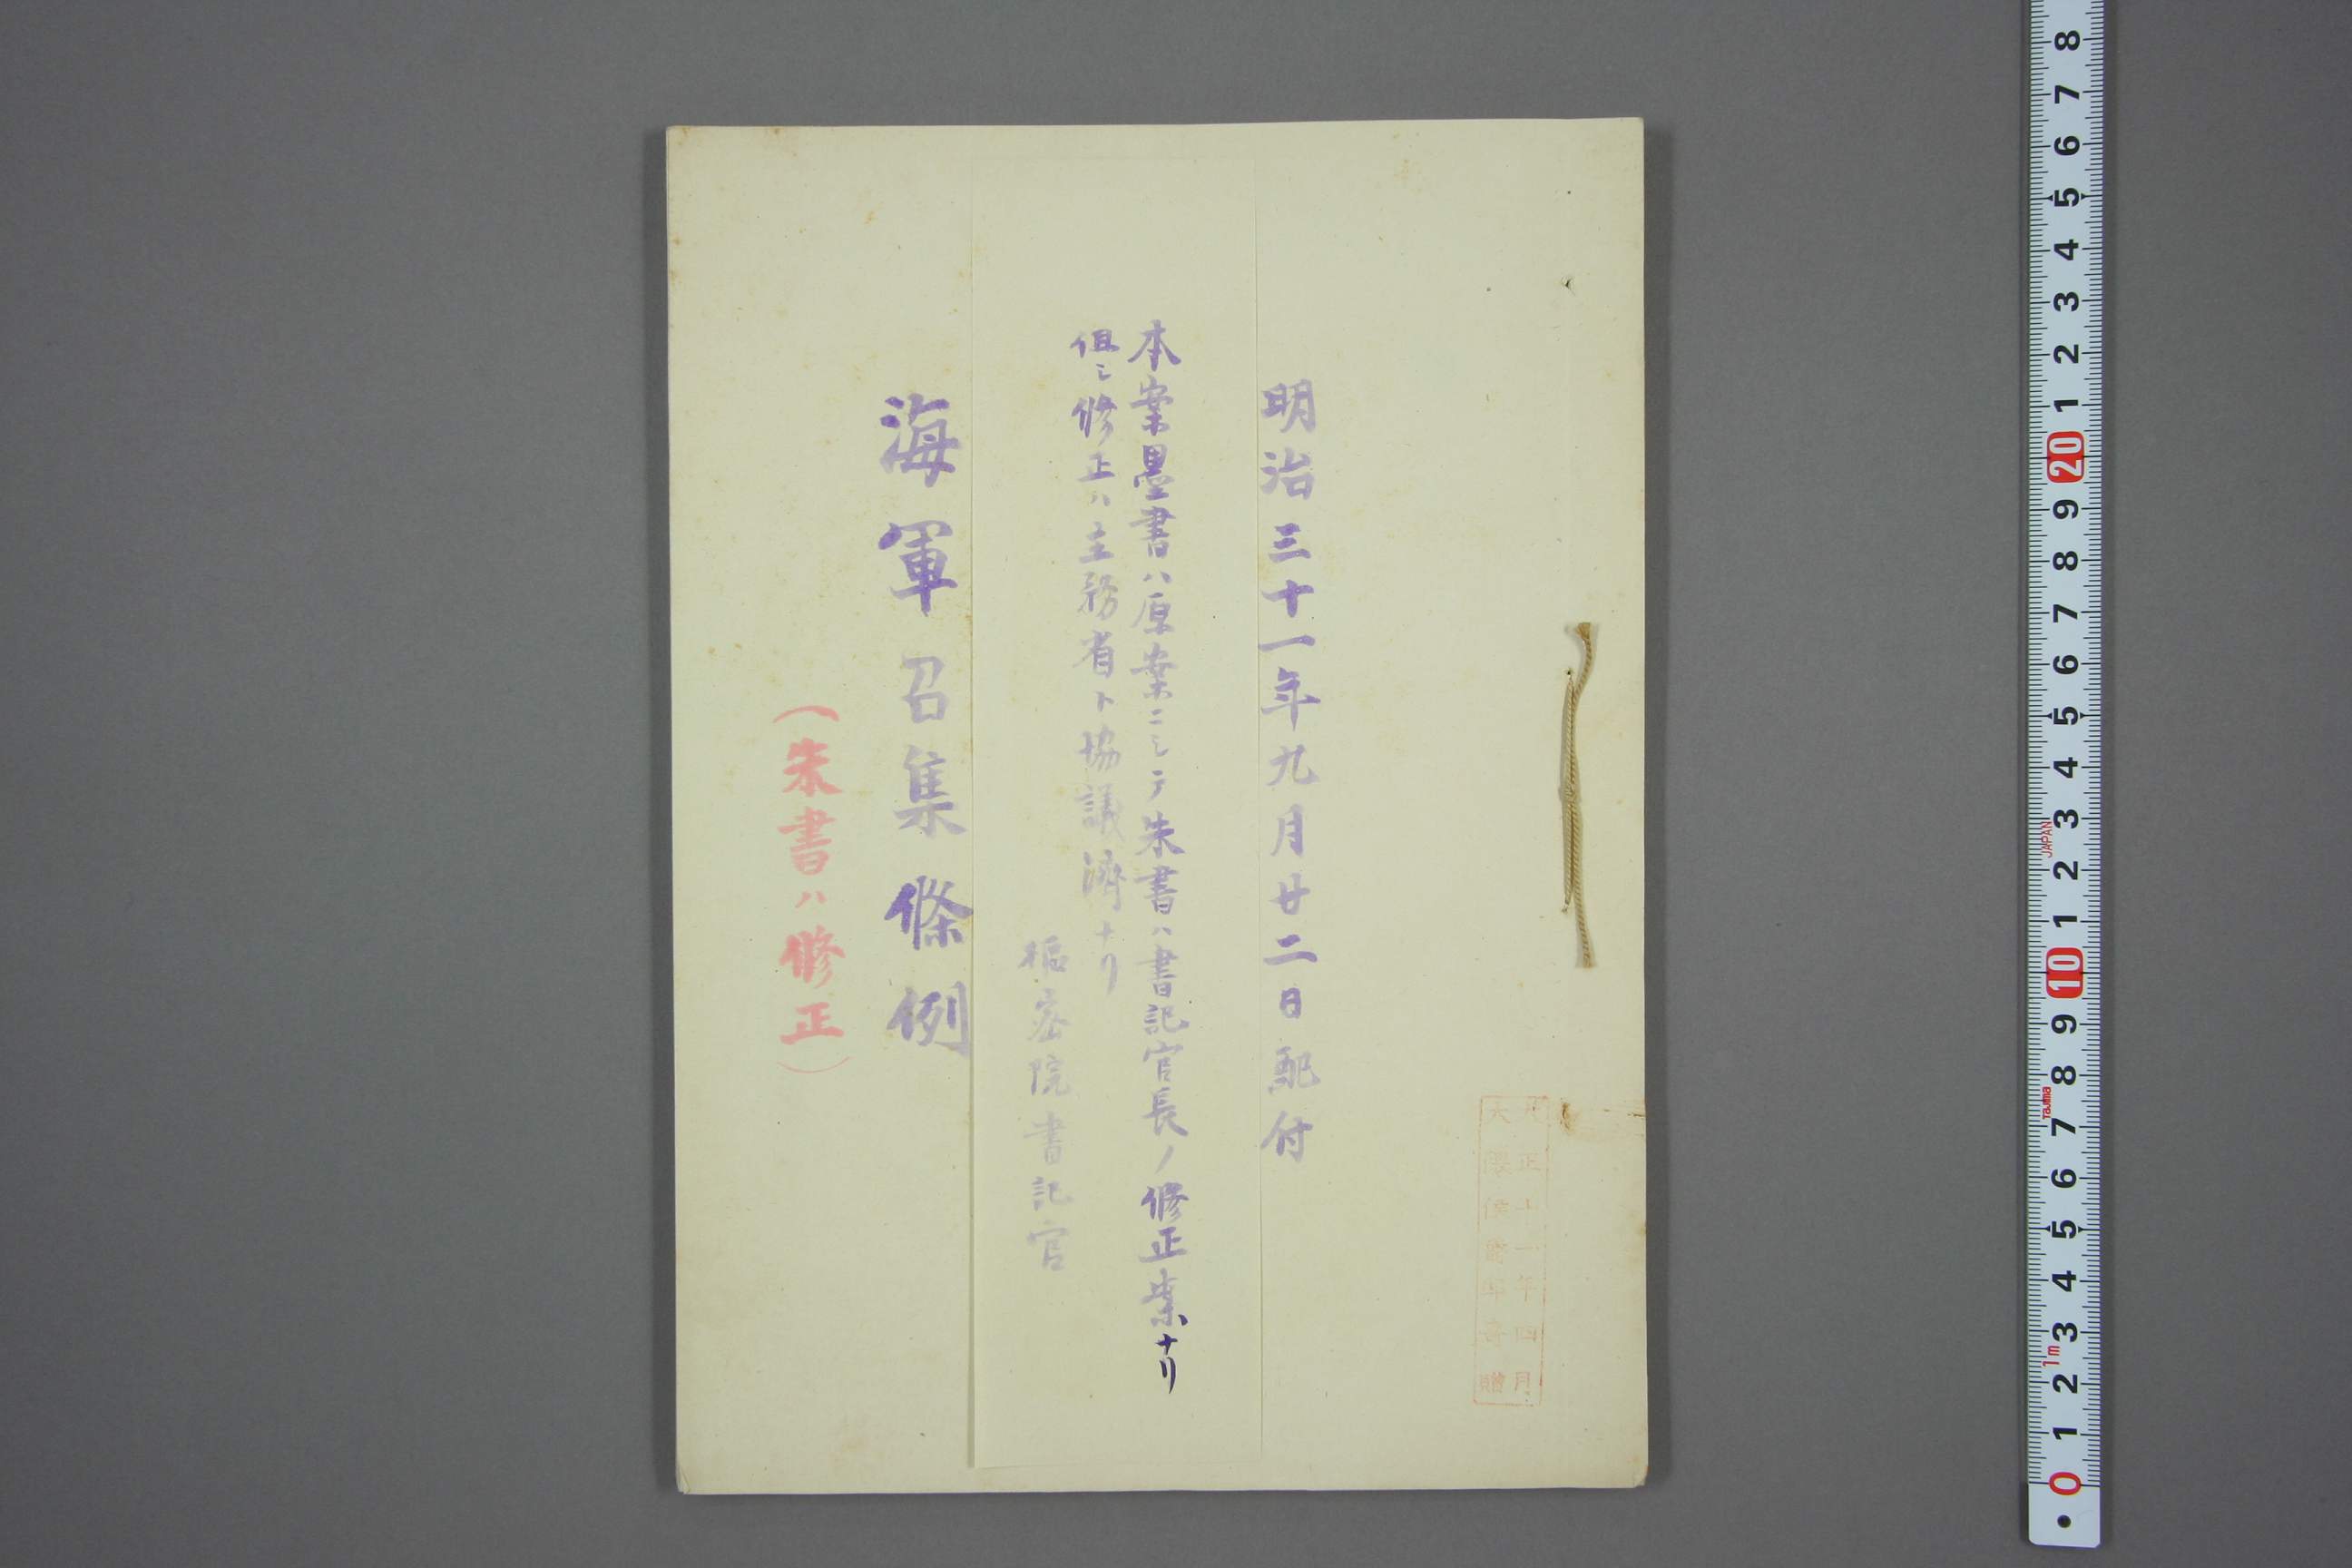 大正十一年四月
明治三十一年九月廿二日配付
本案墨書ハ原案ニシテ朱書ハ書記官長ノ修正案ナリ
但シ修正ハ主務省ト協議濟ナリ
樞密院書記官
海軍召集條例
（朱書ハ修正）
8 7 6 5 4 3 2 1 20 9 8 7 6 5 4 3 2 1 10 9 8 7 6 5 4 3 2 1 0
JAPAN
Tajima
1m